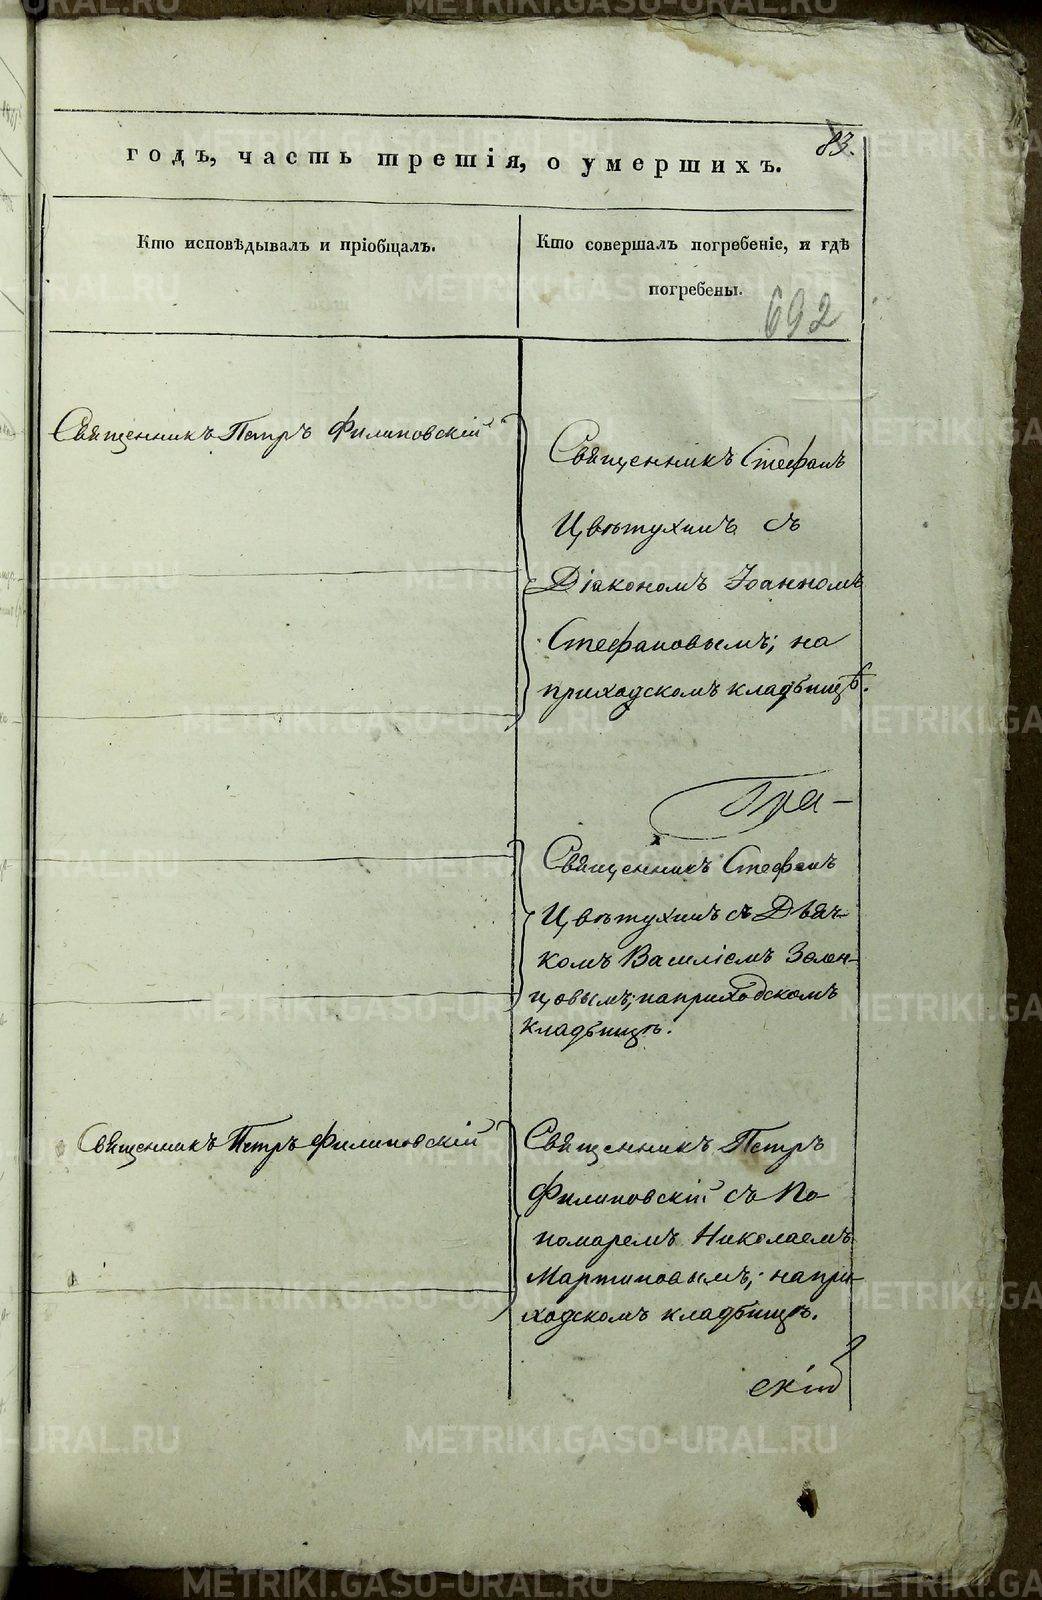 83.
годъ, часть третія, о умершихъ.
Кто исповѣдывалъ и пріобщалъ.
Кто совершалъ погребеніе, и гдѣ
погребены.
692
Священникъ Петръ Филиповскій
Священникъ Стефанъ
Цвѣтухинъ съ
Діакономъ Іоанномъ
Стефановымъ; на
приходскомъ кладбищѣ.
Пра-
Священникъ Стефанъ
Цвѣтухинъ съ Дьяч-
комъ Василіемъ Зелен-
цовымъ; на приходскомъ
кладбищѣ.
Священникъ Петръ Филиповскій
Священникъ Петръ
Филиповскій съ По
номаремъ Николаемъ
Мартиновымъ; на при-
ходскомъ кладбищѣ.
скій
METRIKI.GASO-URAL.RU